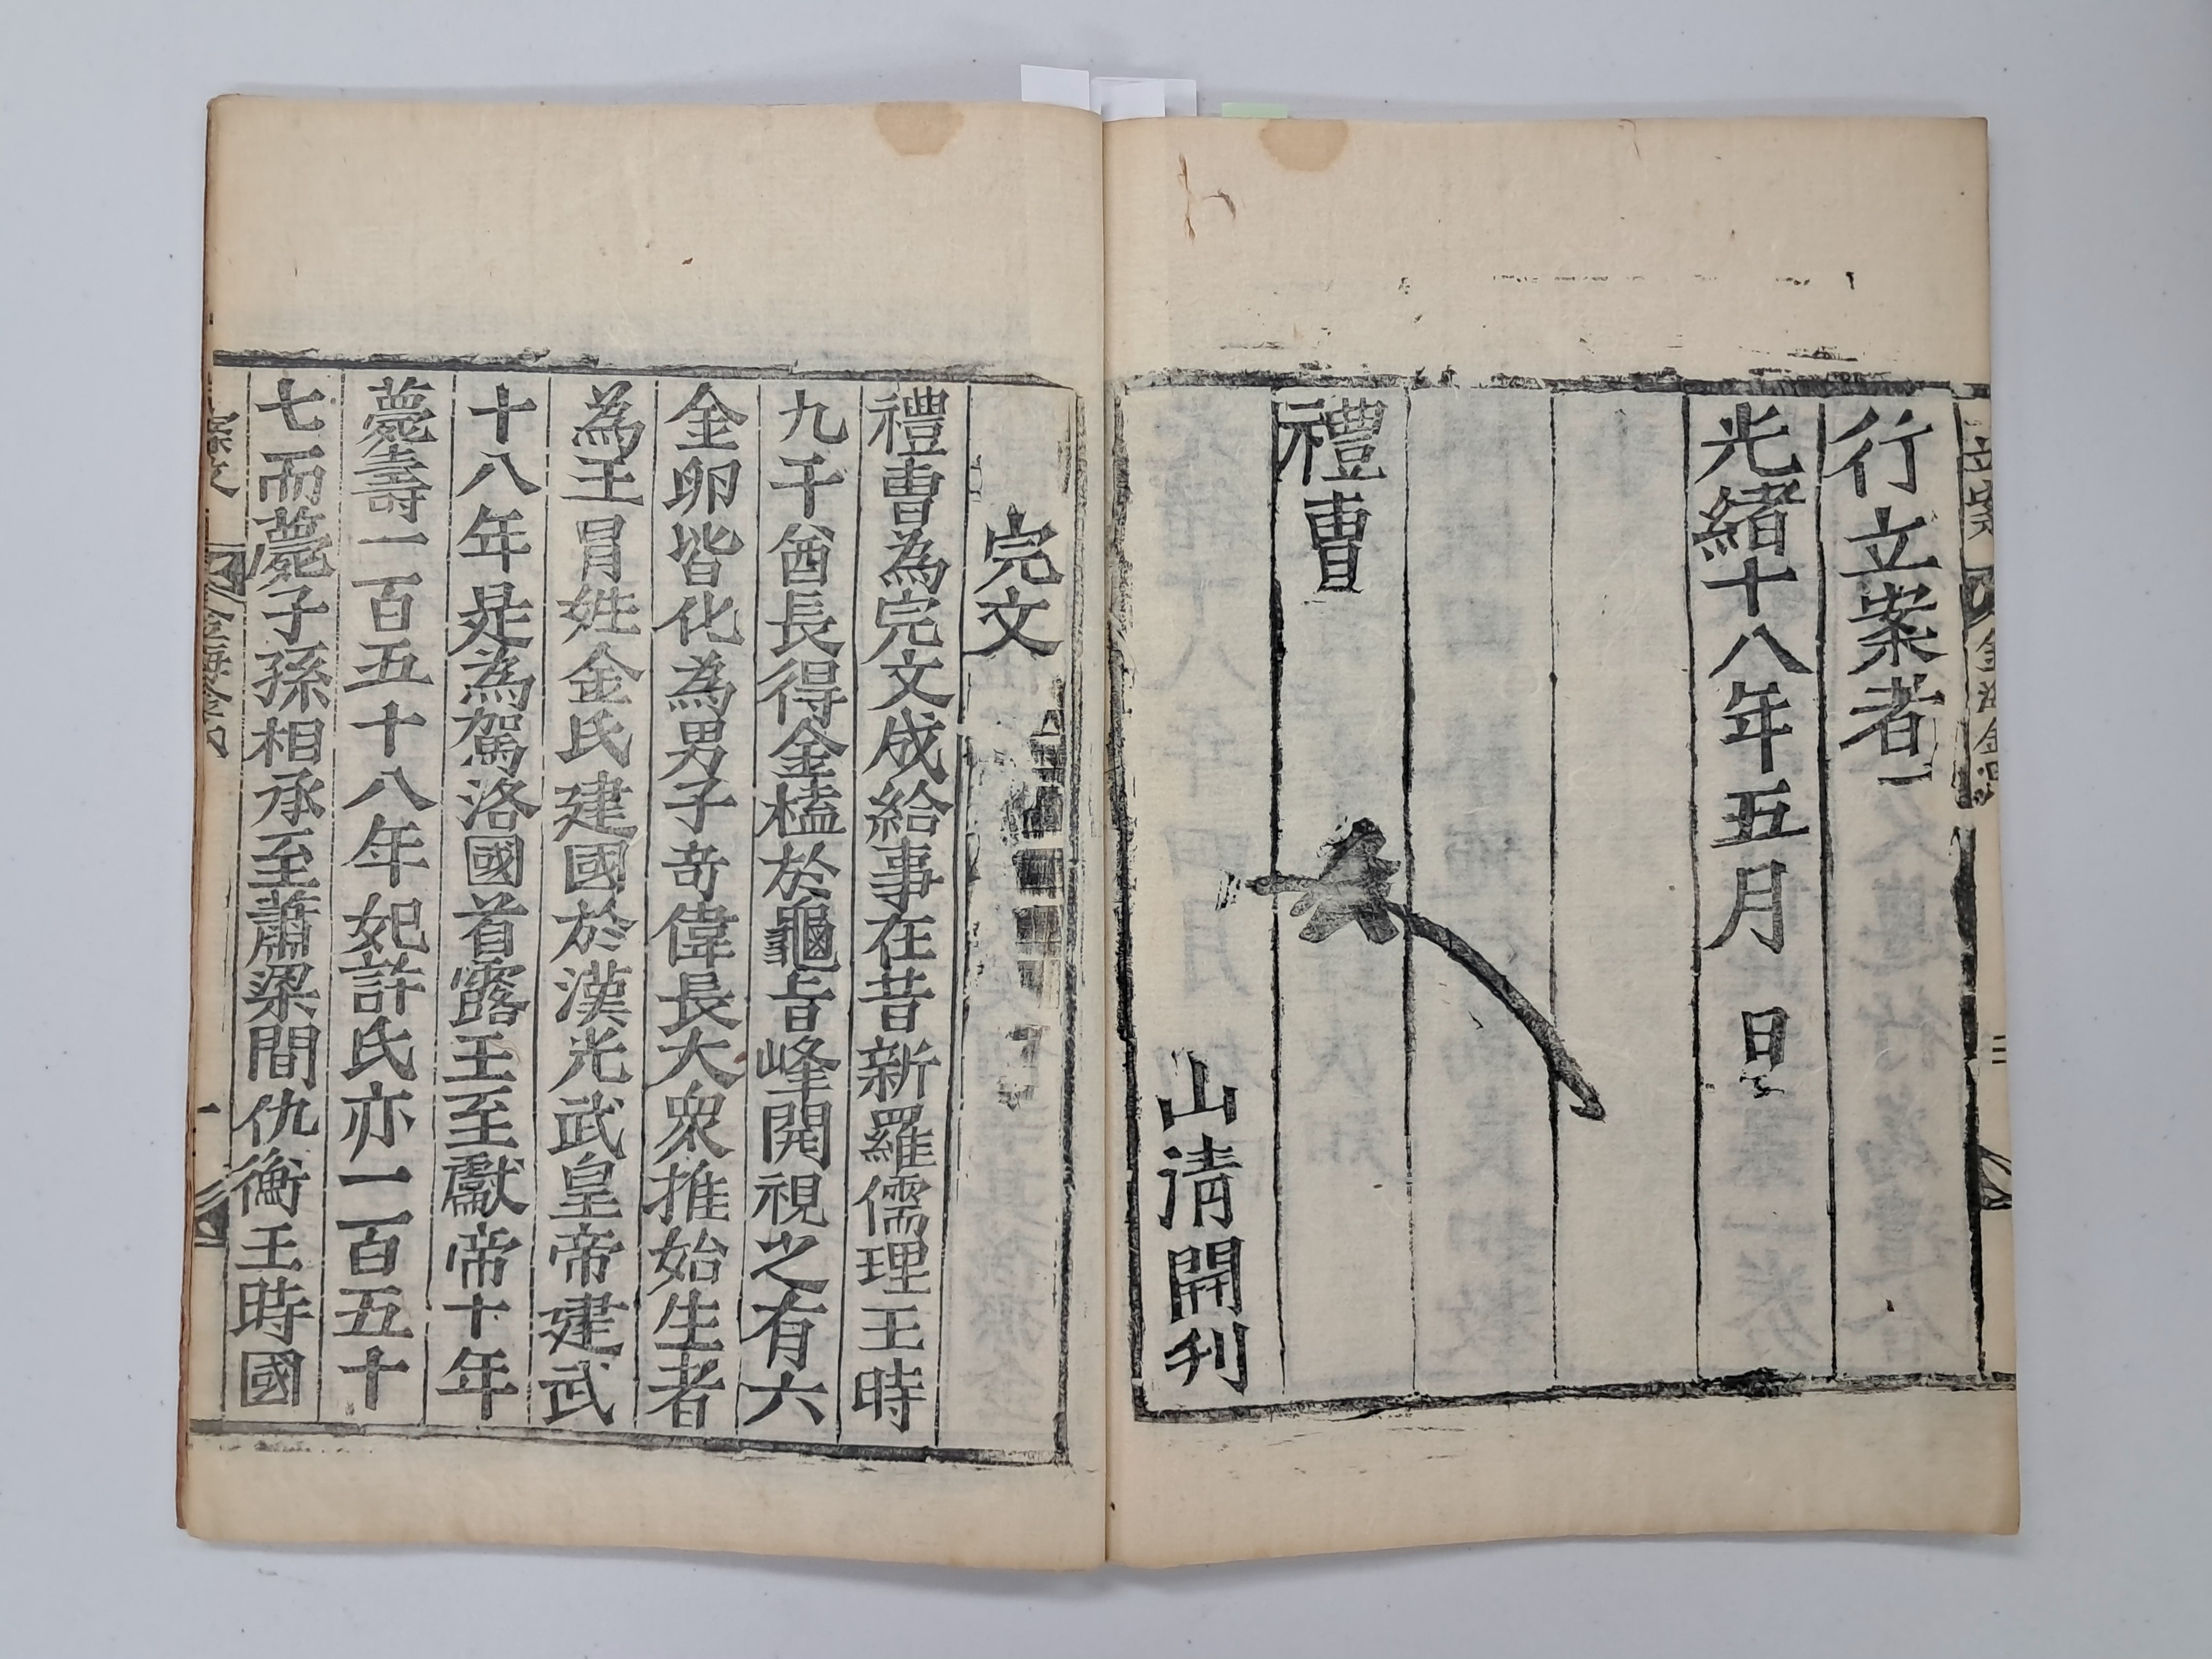 行立案者
光緖十八年五月 日
禮曹
山淸開刋
完文
禮曹為完文成給事在昔新羅儒理王時
九千酋長得金榼於龜旨峰開視之有六
金卵皆化為男子竒偉長大衆推始生者
為王冐姓金氏建國於漢光武皇帝建武
十八年是為駕洛國首露王至獻帝十年
薨壽一百五十八年妃許氏亦一百五十
七而薨子孫相承至蕭梁間仇衡王時國